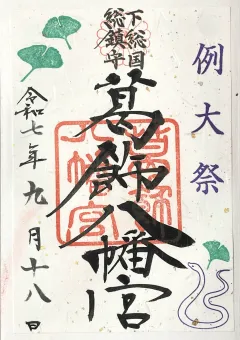 例大祭
下総国
総鎮守
葛飾八幡宮
令和七年九月十八日